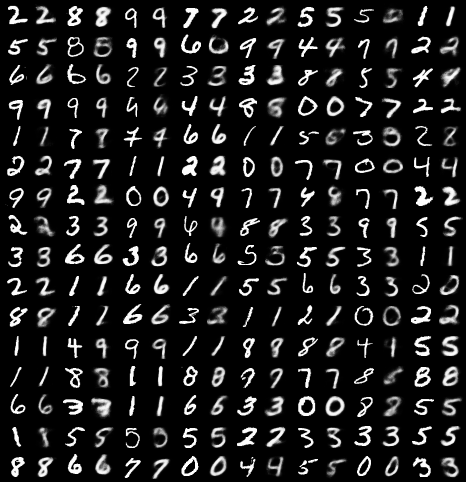 2 2 8 8 9 9 7 7 2 2 5 5 5 1 1
5 5 8 8 9 9 6 0 9 9 4 4 7 7 2 2
6 6 6 6 2 2 3 3 3 3 8 8 5 5 4 9
9 9 9 9 4 4 4 8 8 0 0 7 7 2 2
1 1 7 7 4 6 6 1 1 5 3 2 8
2 2 7 7 1 1 2 2 0 0 7 7 0 0 4 4
9 9 2 2 0 0 4 9 7 7 4 8 7 7 2 2
2 2 3 3 9 9 4 8 8 3 3 9 9 5 5
3 3 6 6 3 3 6 6 5 5 5 5 3 3 1 1
2 2 1 1 6 6 1 1 5 5 6 6 3 3 2 0
8 8 1 1 6 6 3 3 1 1 2 1 0 0 2 2
1 1 4 9 9 9 1 1 8 8 8 8 4 1 5 5
1 1 8 8 1 1 8 8 7 7 7 8 8 8
6 6 3 1 1 6 6 3 3 0 0 8 8 5 5
1 1 5 5 5 5 5 2 2 3 3 3 3 5 5
8 8 6 6 7 7 0 0 4 4 5 5 0 0 3 3